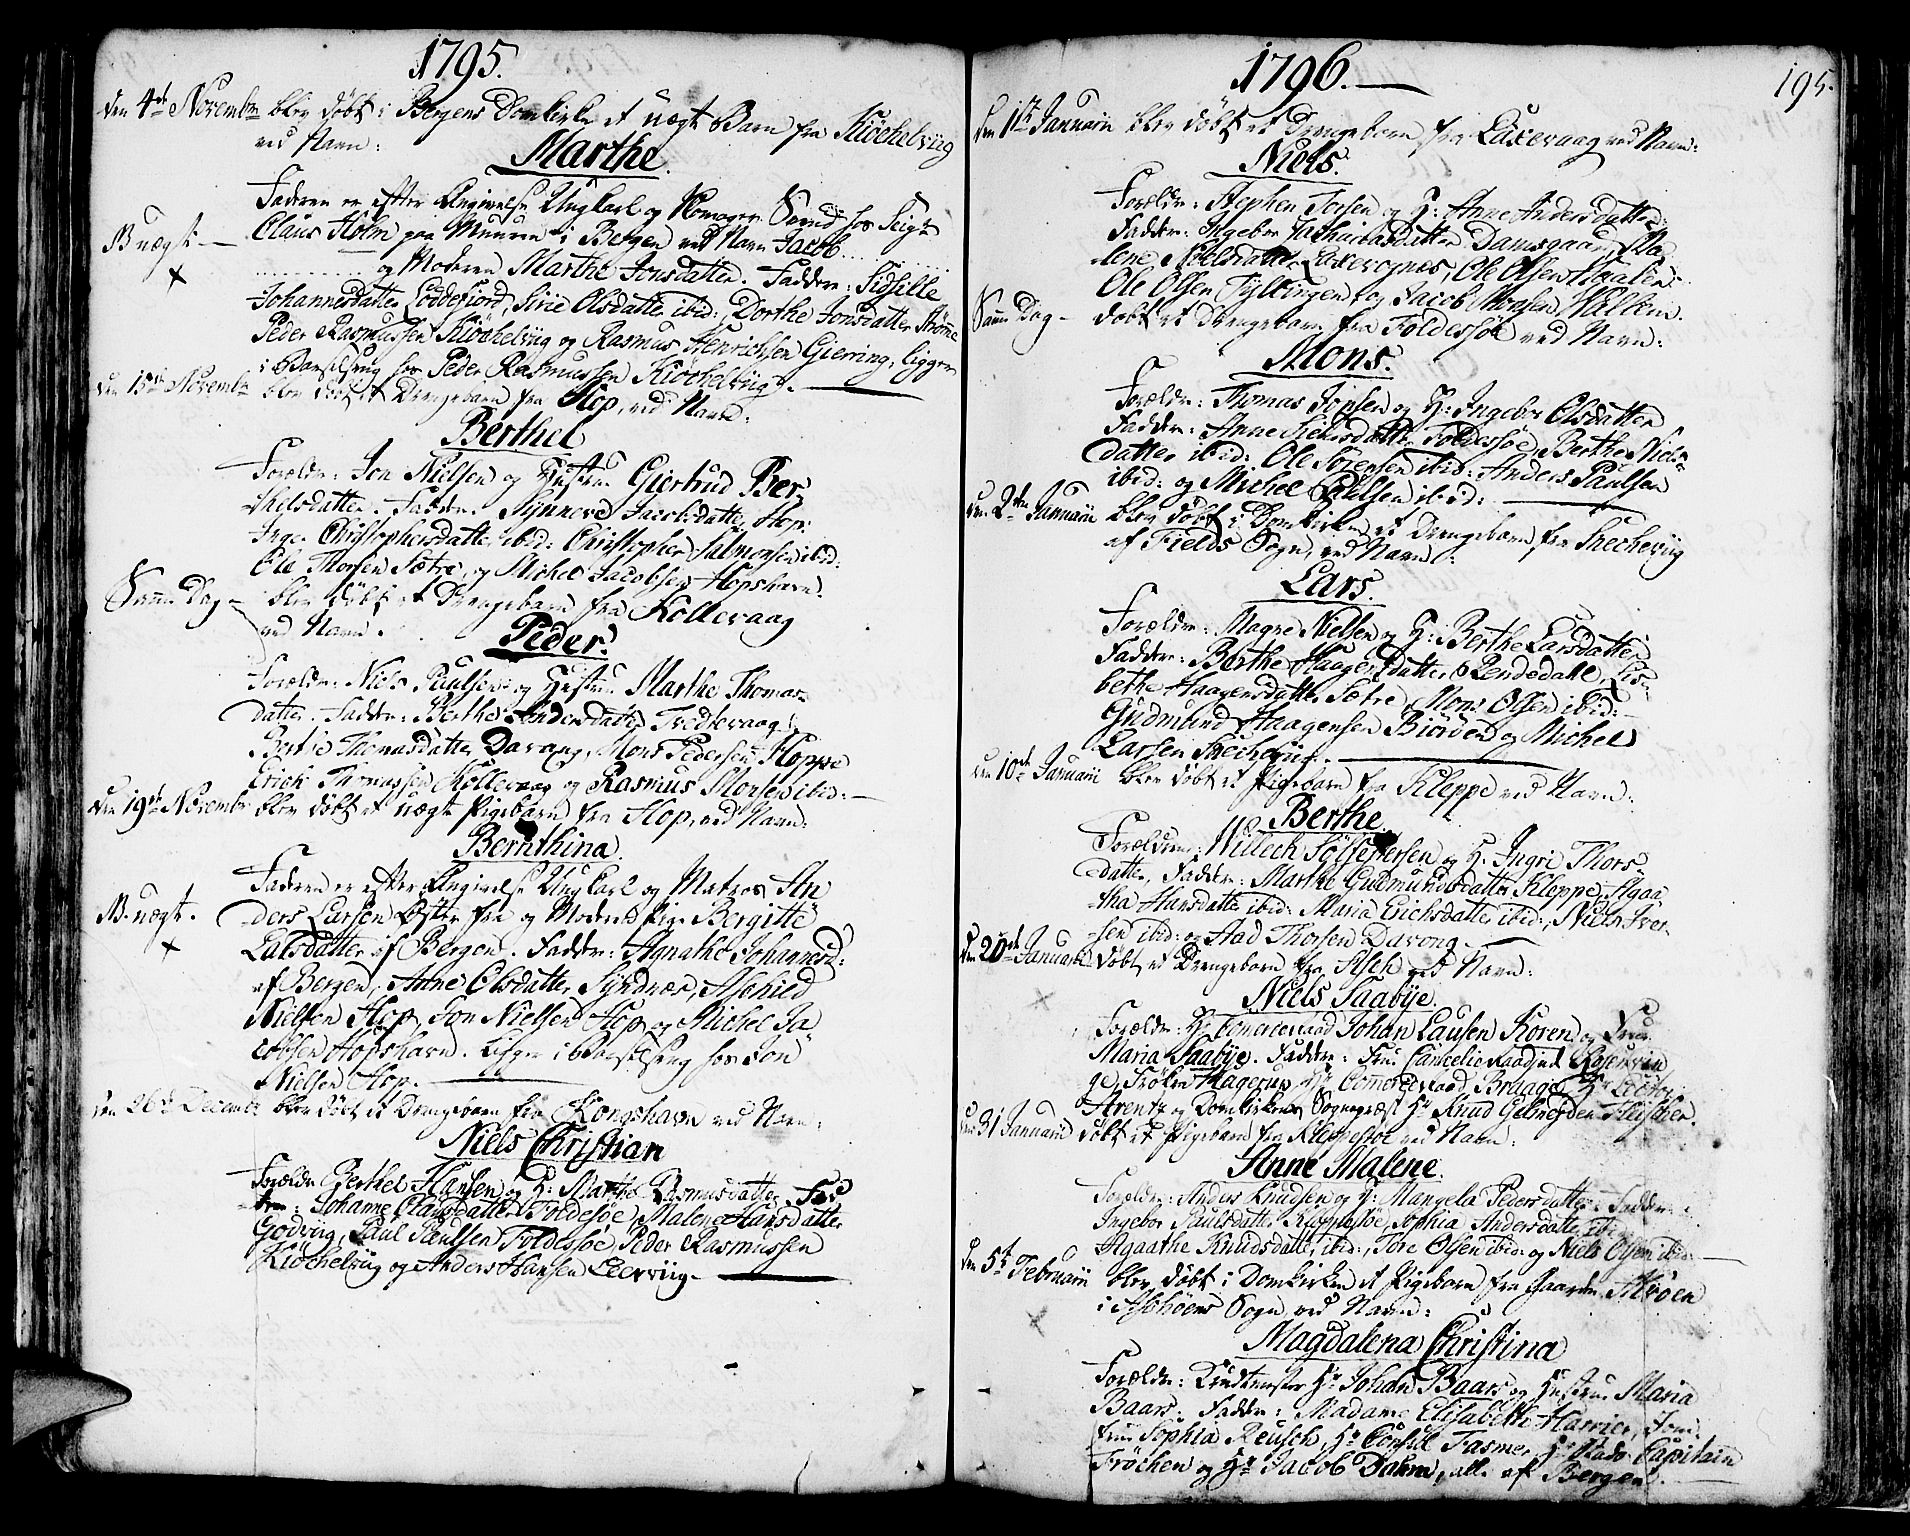 1795.
den 4de Novembr blev døbt i Bergens Domkirke et uægte Barn fra Kiöchelviig
ved Navn:
Marthe.
Faderen er efter Angivelse Ungkarl og Skomager Svend hos Seigr
B uægte —
Claus Holm paa Muuren i Bergen ved Navn Jacob . . . . .
. . . . . . . . . og Moderen Marthe Jonsdatter. Faddere: Sidsille
Johannesdatter Loddefiord, Sirie Olsdatter ibid:, Dorthe Jonsdatter Strømme
Peder Rasmussen Kiöchelviig og Rasmus Henrichsen Giering, ligger
i Barselseng hos Peder Rasmussen Kiöchelviig. —
den 15de Novembr blev døbt et Drengebarn fra Hop, ved Navn:
Berthel
Forældre: Jon Nielsen og Hustrue Giertrud Ber-
thelsdatter. Faddere: Synneve Jacobsdatter Hop:
Inger Christophersdatter ibid: Christopher Salmonsen ibid:
Ole Thorsen Sætre, og Michel Jacobsen Hopshavn.
Samme Dag — blev døbt et Drengebarn fra Kollevaag
ved Navn.
Peder.
Forældre: Niels Paulsen og Hustrue Marthe Thomas-
datter. Faddere: Berthe Andersdatter Tredtevaag,
Berthe Thomasdatter Davang, Mons Pedersen Kloppe
Erich Thomassen Kollevaag og Rasmus Monsen ibid: —
den 19de Novembr blev døbt et uægte Pigebarn fra Hop, ved Navn:
Bernthina.
Faderen er efter Angivelse Ungkarl og Matros An
B uægt.
ders Larsen Øster fra og Moderen Pige Bergitte
Larsdatter af Bergen. Faddere: Agnathe Johannesd:
af Bergen, Anne Olsdatter Syndnæs, Aschild
Nielsen Hop, Jon Nielsen Hop og Michel Ja
cobsen Hopshavn. Ligger i Barselseng hos Jon
Nielsen Hop. —
den 26de Decembr blev døbt et Drengebarn fra Kongshavn ved Navn:
Niels Christian
Forældre Berthel Hansen og H: Marthe Rasmusdatter. Fad
dere: Johanne Clausdatter Foldesøe, Malene Hansdatter
Godviig, Paul Paulsen Foldessøe, Peder Rasmussen
Kiöchelviig og Anders Hansen Leerviig. —
1796. —
195.
den 1ste Januarii blev døbt et Drengebarn fra Laxevaag ved Navn:
Niels.
Forældre: Stephen Torsen og H: Anne Andersdatter:
Faddere: Ingebor Zachariasdatter Damsgaard, Ma-
lene Nielsdatter Laxevognæs, Ole Olsen Haalien
Ole Olsen Fyllingen og Jacob Monsen Hilleren.
Samme Dag — døbt et Drengebarn fra Foldessøe ved Navn:
Mons.
Forældre: Thomas Jonsen og H: Ingebor Olsdatter
Faddere: Anne Siursdatter Foldessøe, Berthe Niels-
datter ibid: Ole Sørensen ibid: Anders Paulsen
ibid: og Michel Paulsen ibid: —
den 2den Januarii blev døbt i Domkirken et Drengebarn fra Skecheviig
af Fields Sogn, ved Navn:
Lars.
Forældre: Magne Nielsen og H: Berthe Larsdatter
Faddere: Berthe Haagensdatter Rendedall, Lis-
bethe Haagensdatter Sætre, Mons Olsen ibid:
Gudmund Haagensen Biörden og Michel
Larsen Skecheviig. —
den 10de Januarii blev døbt et Pigebarn fra Kleppe ved Navn:
Berthe
Forældre: Willech Sölfestersen og H. Ingri Thors-
datter, Faddere: Marthe Gudmundsdatter Kleppe, Agaa
tha Hansdatter ibid: Maria Erichsdatter ibid:, Niels Iver-
sen ibid: og Aad Thorsen Davang. —
den 20de Januarii døbt et Drengebarn fra Ask ved Navn:
Niels Saabÿe.
Forældre: Hr Commerceraad Johan Lausen Koren og Frue
Maria Saabÿe. Faddere: Frue Cancelieraadinde Rosenvin
ge, Frøken Hagerup, Hr Commerceraad Bruage, Hr
Arentz og Domkirkens Sognepræst Hr Knud Gelmeyden Fleischer.
den 31 Januarii døbt et Pigebarn fra Kleppestøe ved Navn:
Anne Malene.
Forældre: Anders Knudsen og H: Mangela Pedersdatter: Faddere:
Ingebor Paulsdatter Klepestöe, Sophia Andersdatter ibid:
Agaathe Knudsdatter ibid:, Tore Olsen ibid: og Niels Olsen ibid: —
den 5te Februarii blev døbt i Domkirken et Pigebarn fra Gaarden Milöen
i Aschöens Sogn, ved Navn:
Magdalena Christina
Forældre: Hr Johan Baars og Hustrue Maria
Baars. Faddere: Madame Elisabeth Harrier, Jom-
frue Sophia Reusch, Hr Consul Fasmer, Hr Stads-Capitain
Fröchen og Hr Jacob Dahm, alle af Bergen. —